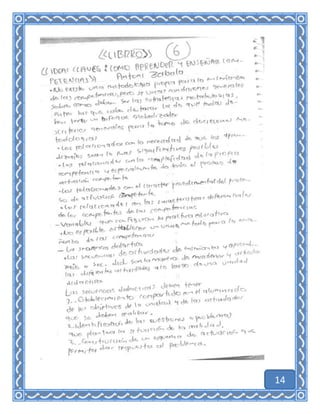 <<LIBRO>> 6
<<IDEAS CLAVES: COMO APRENDER Y ENSEÑAR COM-
PETENCIAS>> Antoni Zabala
-No existe una metodología propia para la enseñanza
de las competencias, pero si unas condiciones generales
sobre como deben ser las estrategias metodologicas,
entre las que cabe destacar la de que todas de-
ben tener un enfoque globalizador
criterios generales para la toma de decisiones
todologicas
-Los relacionados con la necesidad de que los apren-
dizajes sean lo mas significativos posibles
-Los relacionados con la complejidad de la propia
competencia y especialmente de todo el proceso de
actuación competente
-Los relacionados con el caracter procedimental del proce-
so de actuación competente
-Los relacionados con las caracteristicas diferenciales
de los componentes de las competencias
-Variables que configuran la practica educativa
-No es posible establecer un unico metodo para la ense-
ñanza de las competencias
-La secuencia didactica
Las secuencias de actividades de enseñanza y aprendi-
zaje o sec. did. son la manera de encadenar y articular
las diferentes actividades a lo largo de una unidad
didactica
Las secuencias didacticas deben tener
1. Establecimiento compartido con el alumnado
de los objetivos de la unidad y de las actividades
que se deben realizar.
2. Identificación de las cuestiones o problemas
que plantea la situación de la realidad,
3. Construcción de un esquema de actuación que
permita dar respuesta al problema.
14